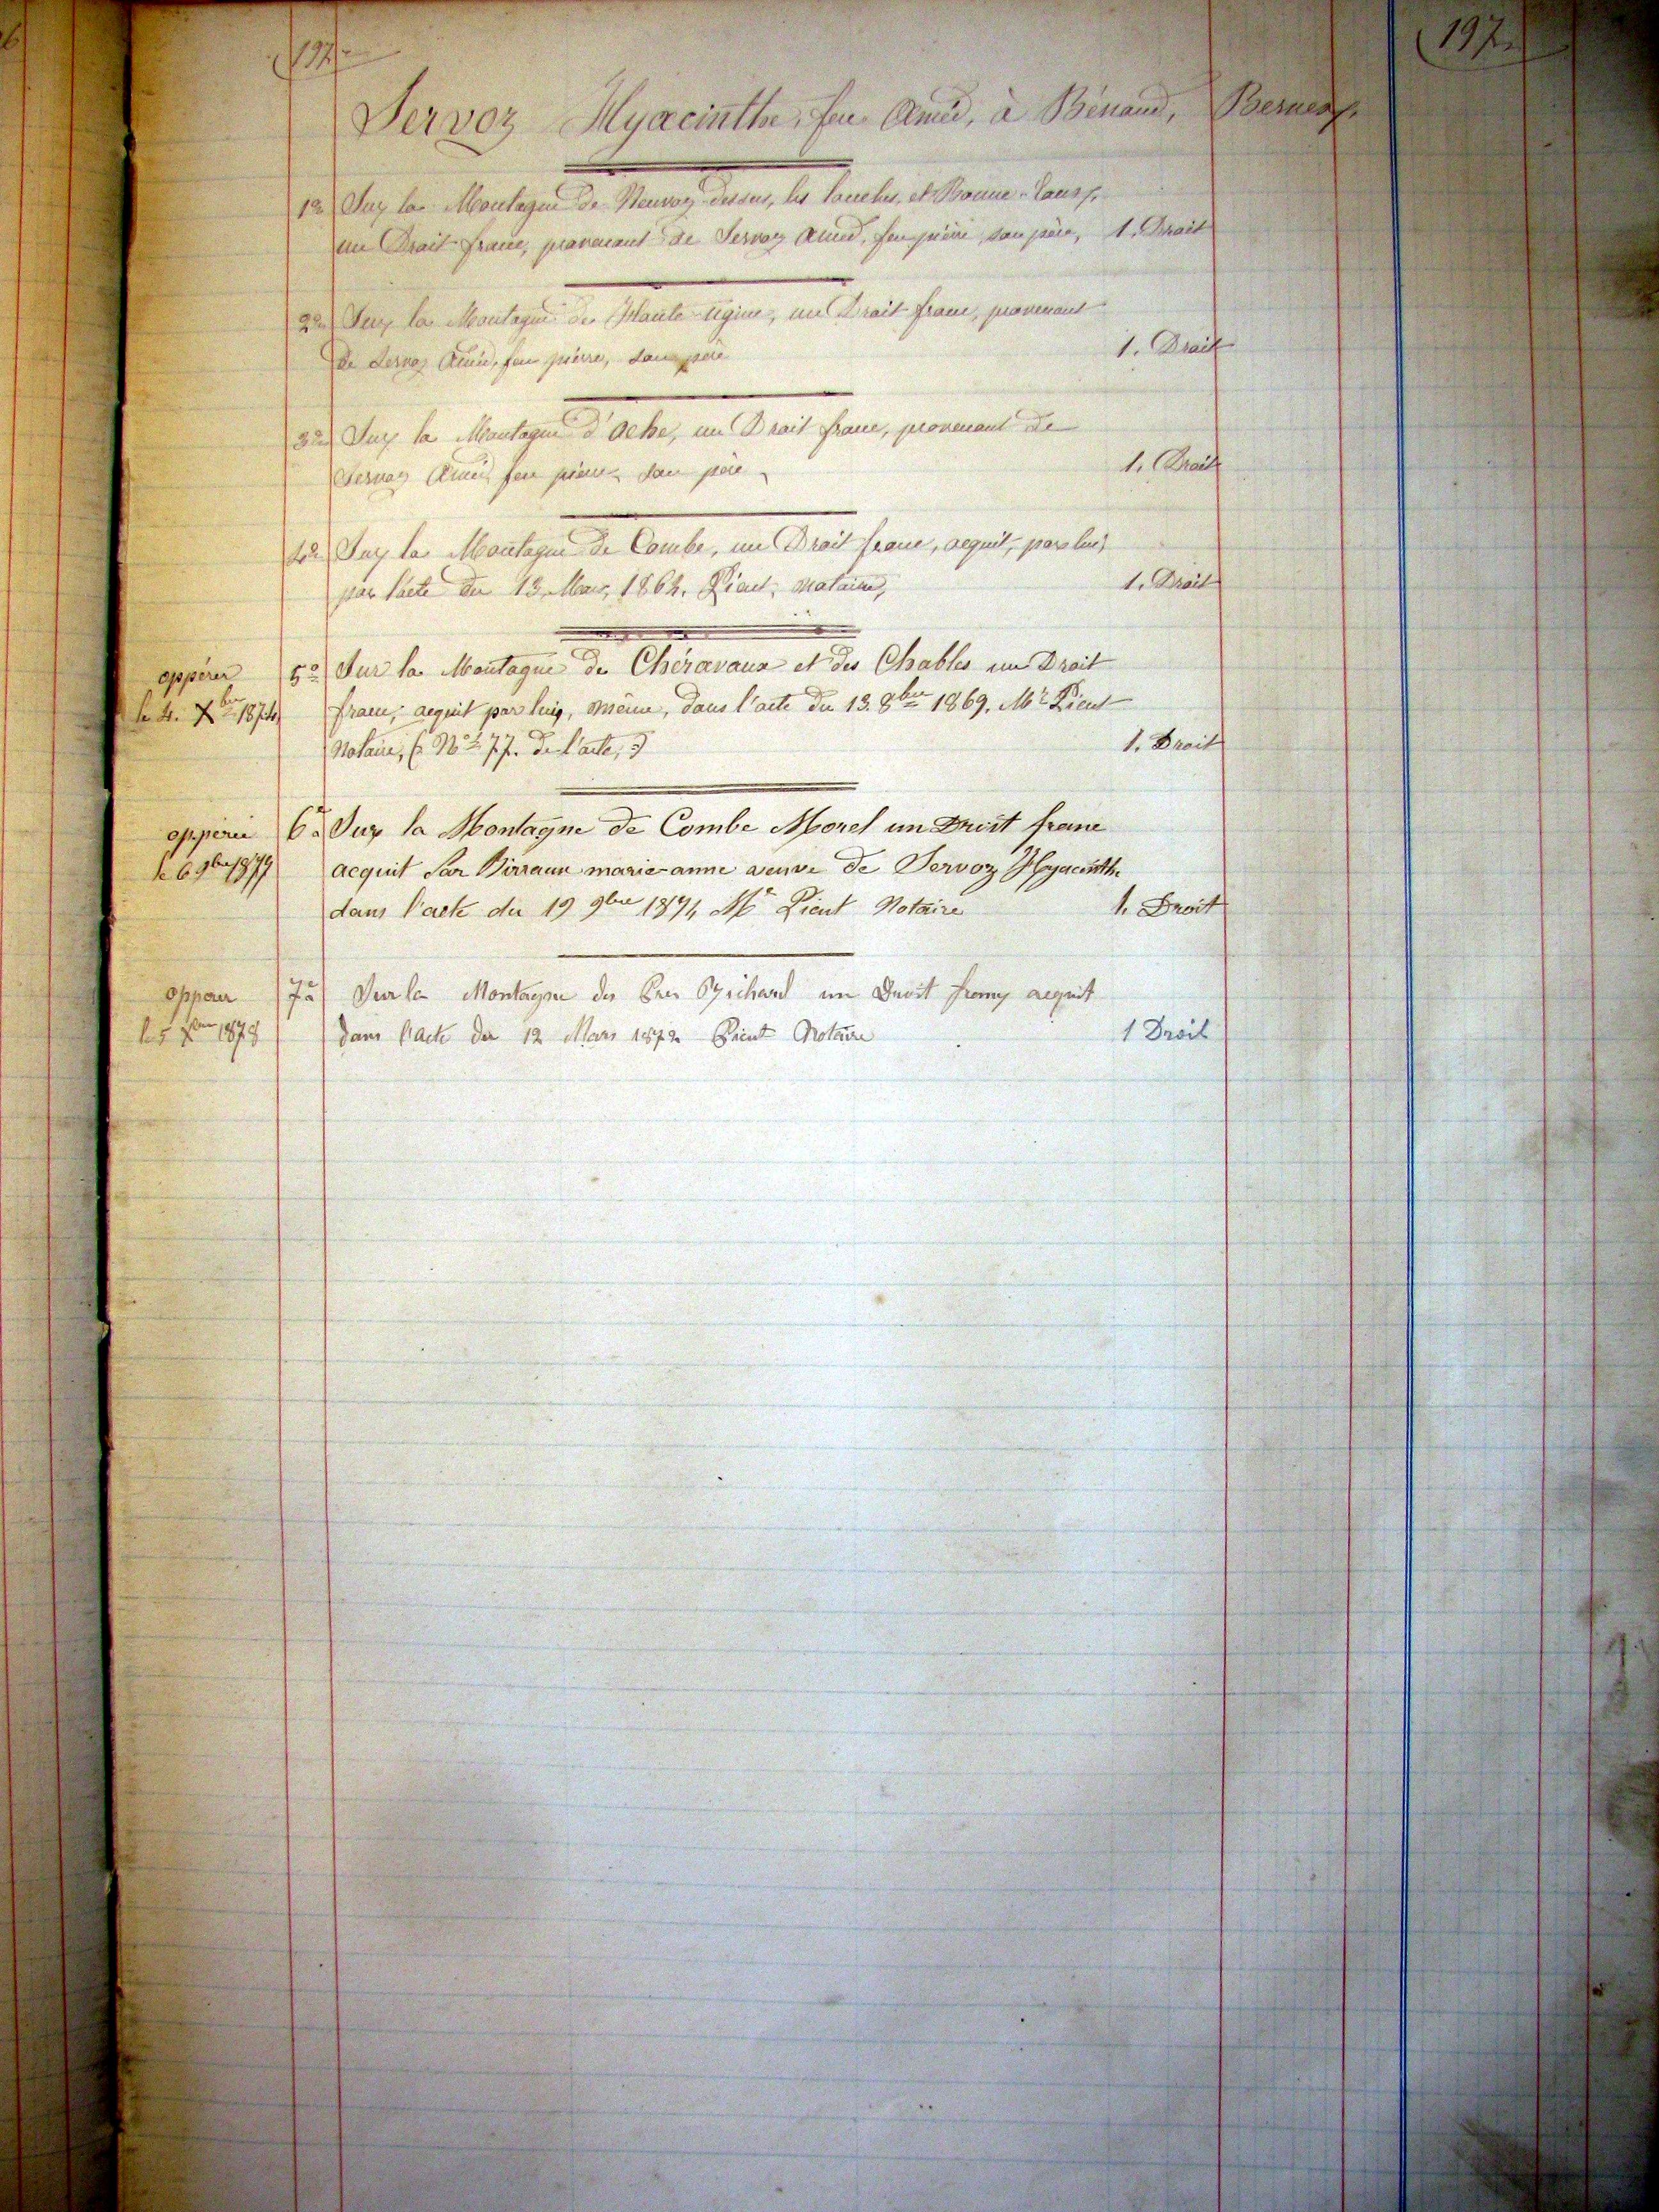 197 197
Servoz Hyacinthe, feu Amed, à Bénand, Bernex,
1º Sur la Montagne de Neuvoz dessus, les et Bonne-
un Droit franc, provenant de Servoz Amed, feu pierre, son père, 1. Droit
2º Sur la Montagne de Haute Ugine, un Droit franc, provenant
de Servoz Amed, feu pierre, son père 1. Droit
3º Sur la Montagne d'Oche, un Droit franc, provenant de
Servoz Amed, feu pierre, son père 1. Droit
4º Sur la Montagne de Combe, un Droit franc, acquit, par lui,
par l'acte du 13 Mars, 1862. Pient, notaire, 1. Droit
oppérer 5º Sur la Montagne de Chéravaux et des Chables un Droit
le 4. Xbre 1874 franc, acquit par lui, même, dans l'acte du 13. 8bre 1869. Mre Pient
Notaire, (Nº 77. de l'acte,) 1. Droit
opperée 6º Sur la Montagne de Combe Morel un Droit franc
le 6 9bre 1877 acquit Par Birraux marie-anne veuve de Servoz Hyacinthe
dans l'acte du 19 9bre 1874 Me Pient Notaire 1. Droit
opperer 7º Sur la Montagne des Prés Richard un Droit acquit
le 5 Xbre 1878 dans l'acte du 12 Mars 1872 Pient Notaire 1 Droit